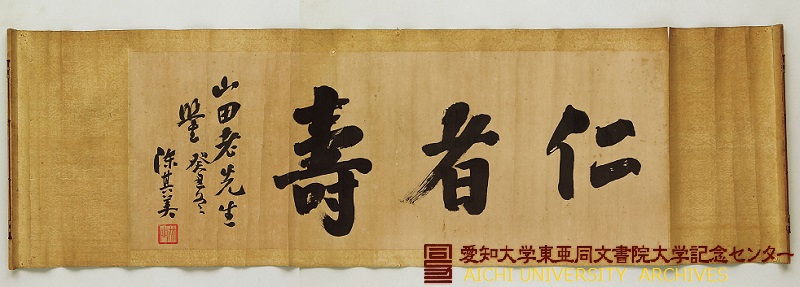 仁者壽
山田老先生
鑒 癸丑冬
陳其美
愛知大学東亜同文書院大学記念センター
AICHI UNIVERSITY ARCHIVES